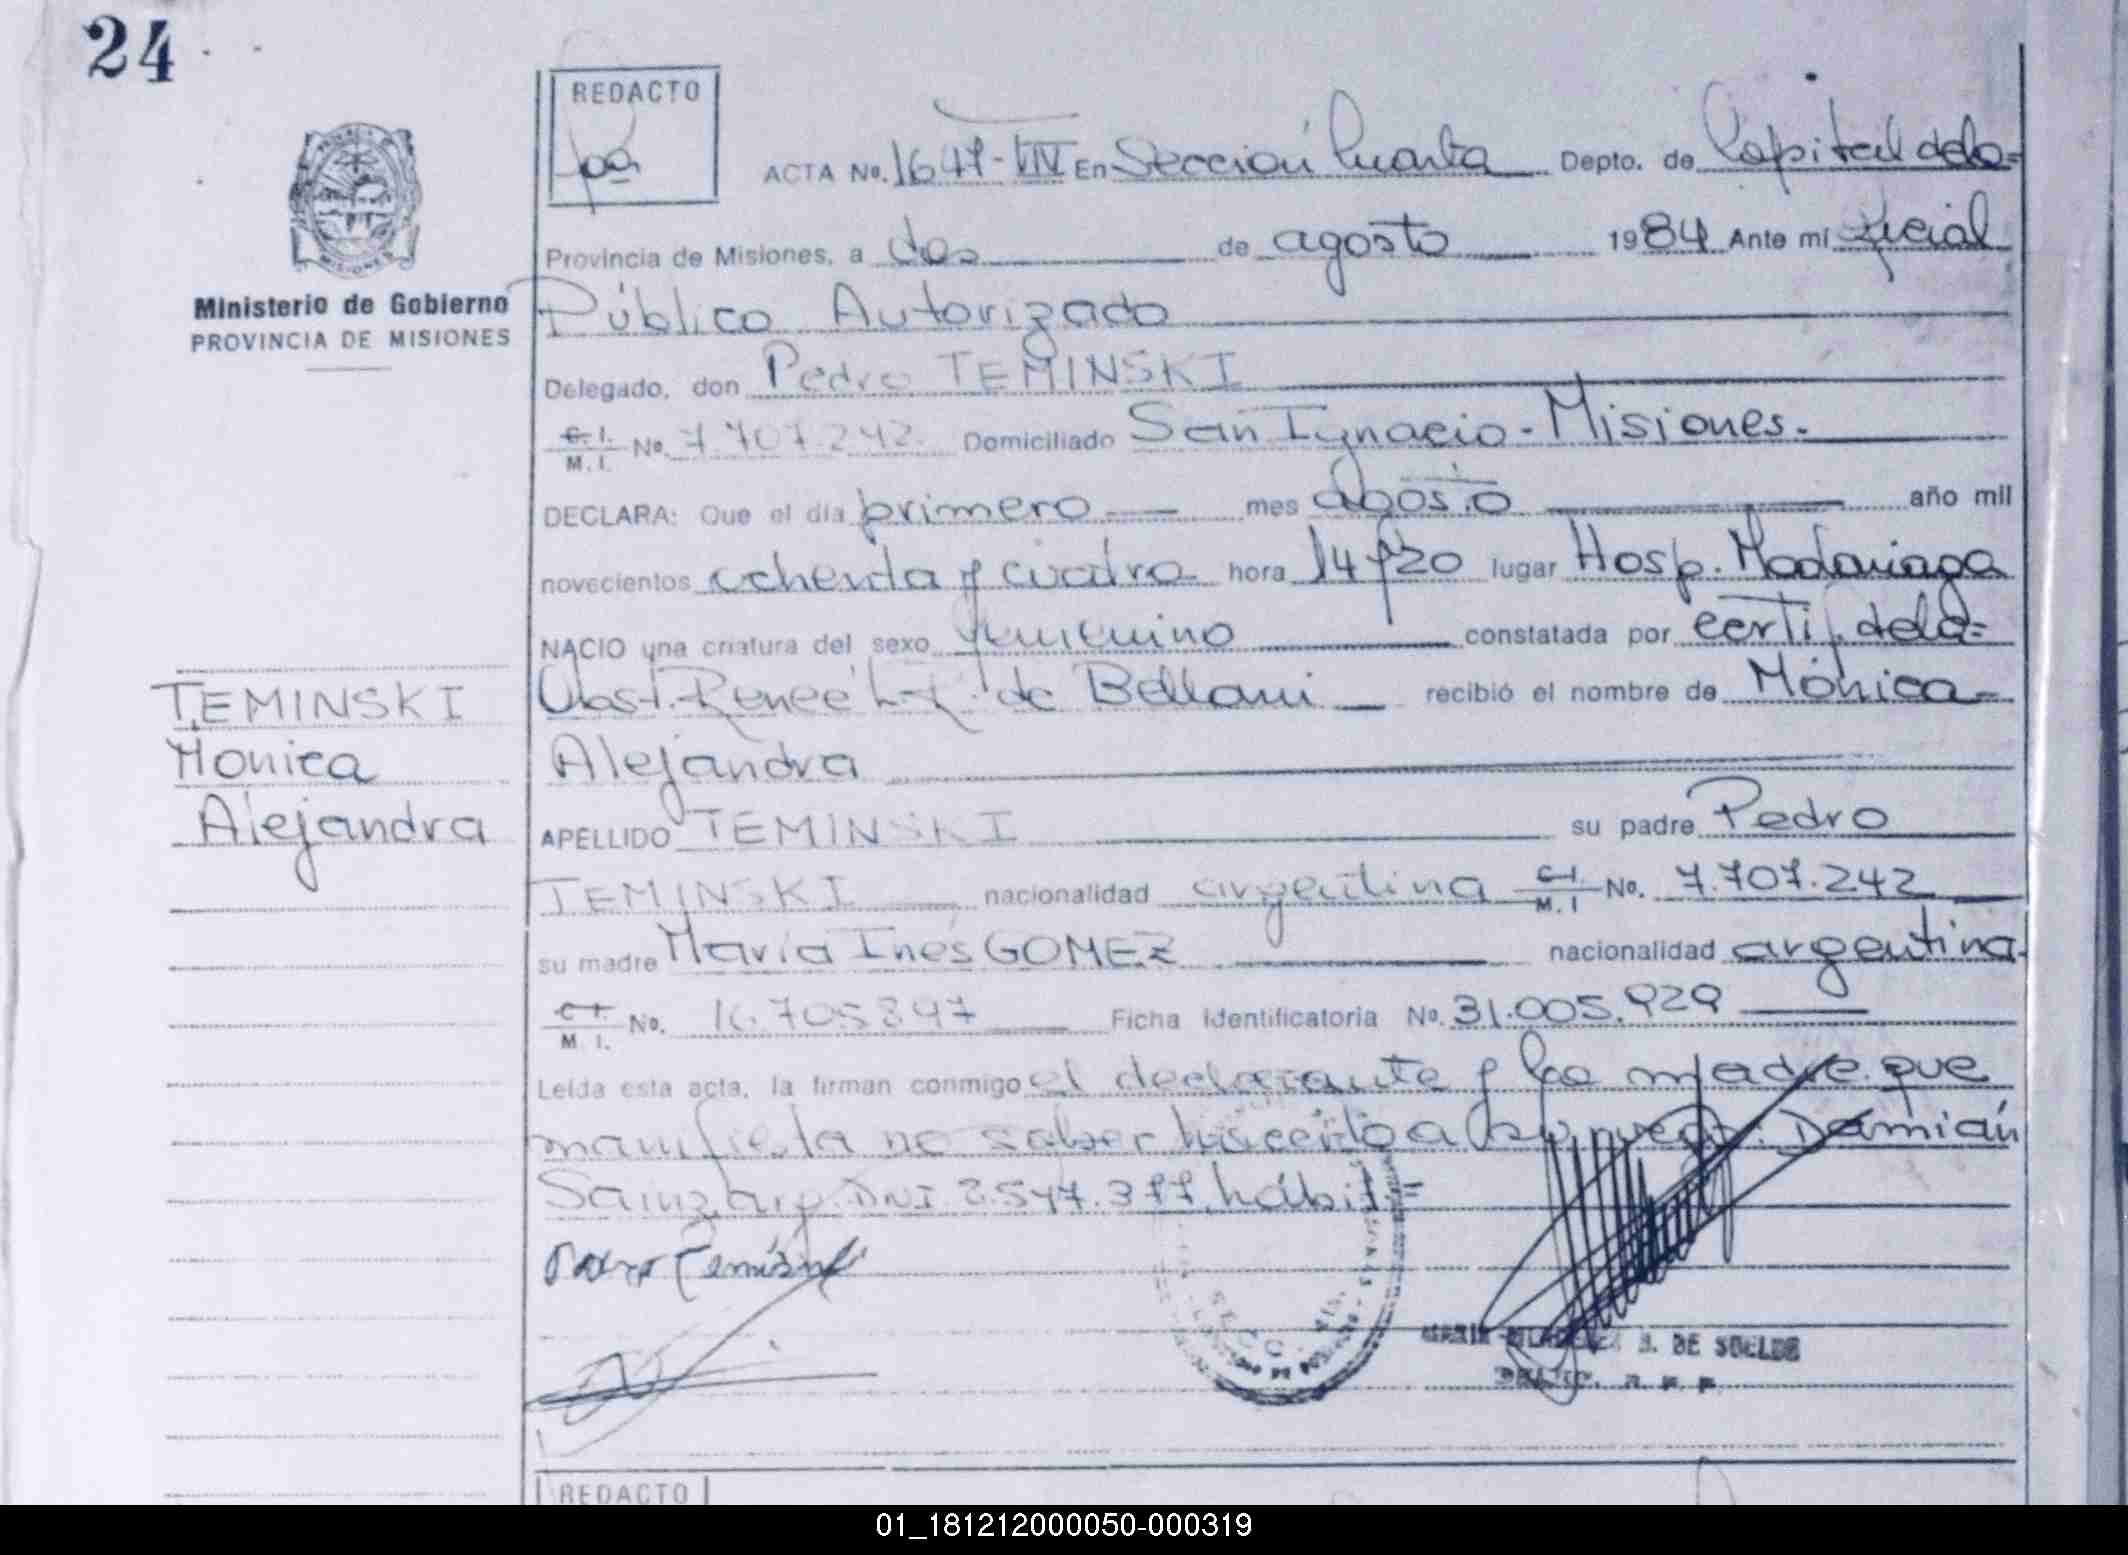 24
REDACTO
ACTA No. 1647- En Sección Cuarta Depto. de Capital de la=
Provincia de Misiones, a dos de agosto 1984 Ante mi Oficial
Ministerio de Gobierno
PROVINCIA DE MISIONES
Público Autorizado
Delegado, don Pedro TEMINSKI
C. I. M. I. No. 7.707.242 Domiciliado San Ignacio - Misiones.
DECLARA: Que el día primero mes agosto año mil
novecientos ochenta y cuatro hora 14 y 20 lugar Hosp. Madariaga
NACIO una criatura del sexo femenino constatada por certif. de la=
TEMINSKI
Monica
Alejandra
Obst. Reneé de Bellani recibió el nombre de Mónica=
Alejandra
APELLIDO TEMINSKI su padre Pedro
TEMINSKI nacionalidad argentina C. I. M. I No. 7.707.242
su madre María Inés GOMEZ nacionalidad argentina.
C. I. M. I. No. 16.705.897 Ficha Identificatoria No. 31.005.929
Leída esta acta, la firman conmigo el declarante y la madre que
manifiesta no saber hacerlo a su ruego: Damián
DNI 2.547.377, hábil
Pedro Teminski
DE
REDACTO
01_181212000050-000319